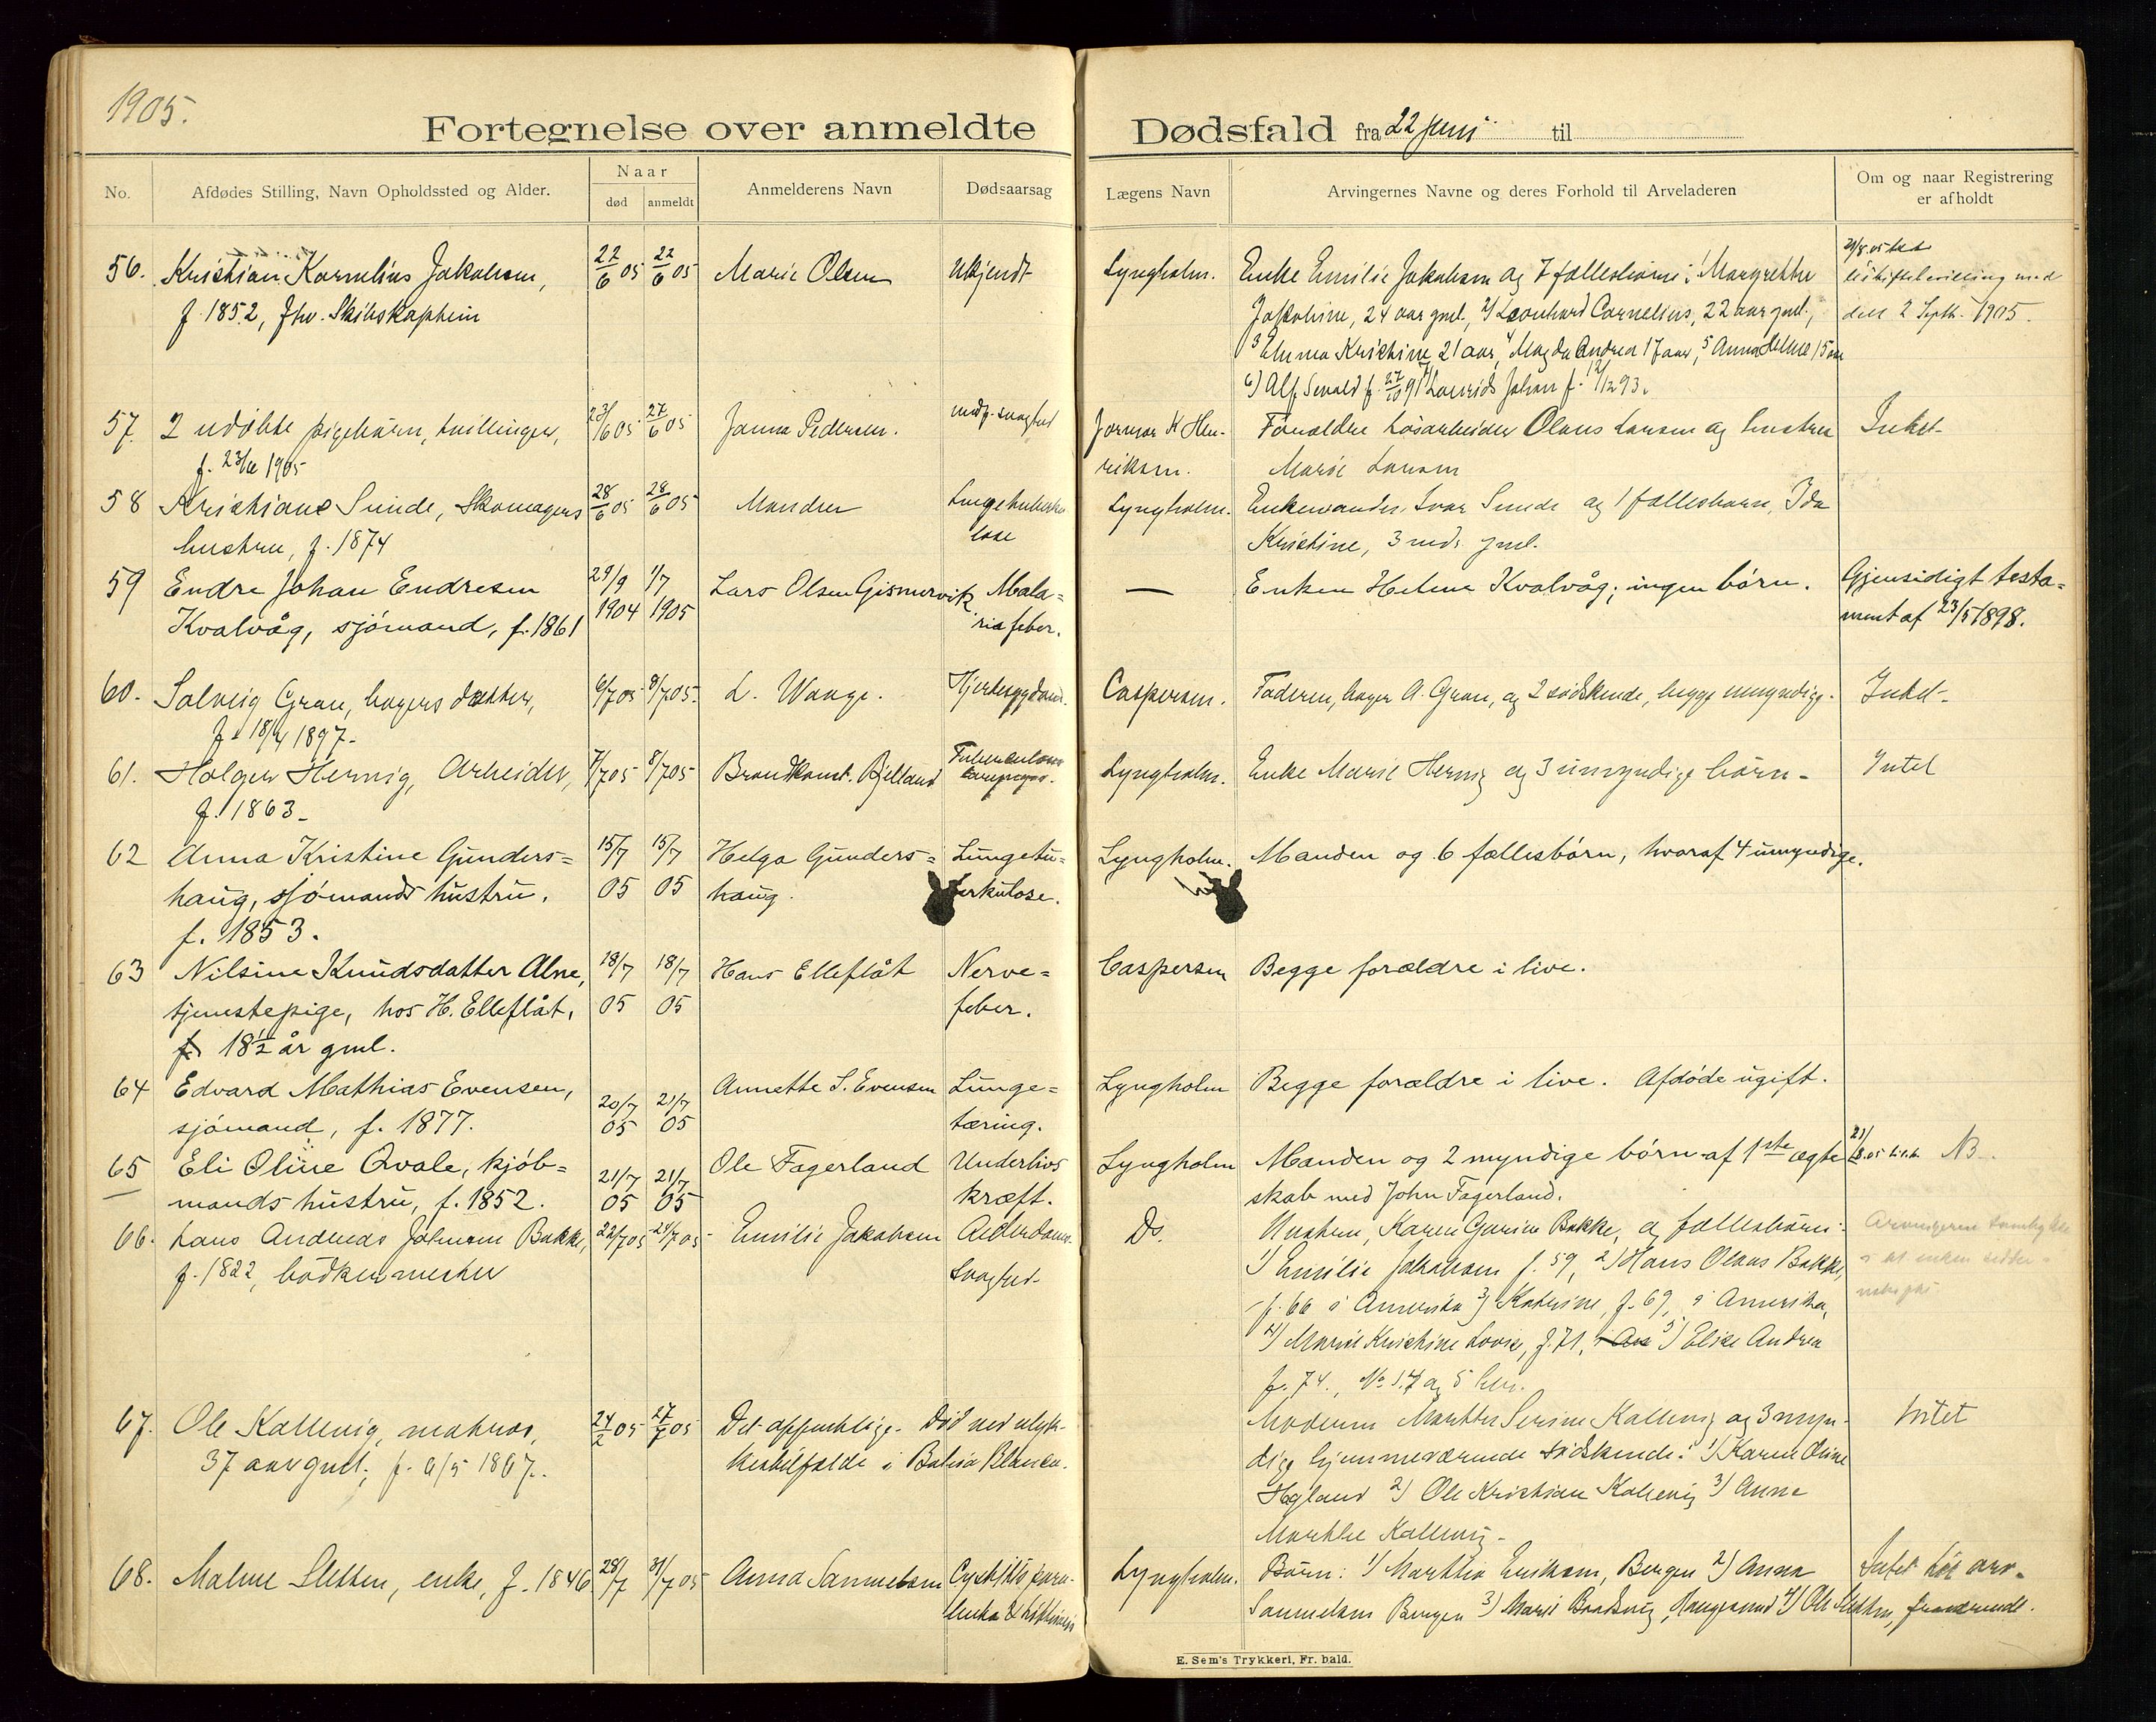 1905.
Fortegnelse over anmeldte Dødsfald fra 22 Juni til
No.
Afdødes Stilling, Navn Opholdssted og Alder.
Naar
død
anmeldt
Anmelderens Navn
Dødsaarsag
Lægens Navn
Arvingernes Navne og deres Forhold til Arveladeren
Om og naar Registrering
er afholdt
56. Kristian Kornelius Jakobsen, 22/6 05 22/6 05 Marie Olsen Ukjendt Lyngholm. Enke Emilie Jakobsen og 7 fællesbørn: 1 Margrethe
f. 1852, fhv. Skibskaptein Jakobine, 24 aar gml., 2) Leonhard Cornelius, 22 aar gml., den 2 Septb. 1905.
3 Emma Kristine 21 aar, 4 Magda Andrea 17 aar, 5 Anna Helene 15 aar
6) Alf Sevald f. 27/10 91 7 Laurids Johan f. 12/12 93.
57. 2 udøbte pigebørn, tvillinger, 23/6 05 27/6 05 Janna Pedersen. medf. svaghed Jormor K Hen- Forældre løsarbeider Olaus Larsen og hustru Intet
f. 23/6 1905 riksen. Marie Larsen
58 Kristiane Sunde, Skomagers 28/6 05 28/6 05 Manden Lungetuberku Lyngholm. Enkemanden Ivar Sunde og 1 fællesbarn, Ida
hustru, f. 1874 lose Kristine, 3 mdr gml.
59 Endre Johan Endresen 29/9 1/7 Lars Olsen Gismervik Mala= — Enken Helene Kvalvåg; ingen børn. Gjensidigt testa=
Kvalvåg, sjømand, f. 1861 1904 1905 riafeber. ment af 23/5 1898.
60. Solveig Gran, bagers datter, 6/7 05 8/7 05. L. Wange. Hjertesygdom. Caspersen. Faderen, bager A. Gran, og 2 sødskende, begge umyndige. Intet-
f. 18/4 1897.
61. Holger Hernig, Arbeider, 7/7 05 8/7 05 Brandkonst. Bjelland Tuberculosis Lyngholm. Enke Marie Hernig og 3 umyndige børn- Intet
f. 1863-
62 Anna Kristine Gunders= 15/7 15/7 Helga Gunders= Lungetu= Lyngholm. Manden og 6 fællesbørn, hvoraf 4 umyndige.
haug, sjømands hustru. 05 05 haug. berkulose.
f. 1853.
63 Nilsine Knudsdatter Alne, 18/7 18/7 Hans Elleflåt Nerve= Caspersen Begge forældre i live.
tjenestepige, hos H. Elleflåt, 05 05 feber.
18½ år gml.
64 Edvard Mathias Evensen, 20/7 21/7 Annette S. Evensen Lunge= Lyngholm Begge forældre i live. Afdøde ugift.
sjømand, f. 1877. 05 05 tæring.
65 Eli Oline Qvale, kjøb= 21/7 21/7 Ole Fagerland Underlivs Lyngholm Manden og 2 myndige børn af 1ste ægte NB.
mands hustru, f. 1852. 05 05 kræft. skab med John Fagerland.
66. Hans Andreas Johnsen Bakke, 22/7 05 24/7 05 Emilie Jakobsen Alderdoms- Do. Hustru, Karen Gurine Bakke, og fællesbørn:
f. 1822, bødkermester Svaghed- 1) Emilie Jakobsen f. 59, 2) Hans Olaus Bakke,
f. 66 i Amerika 3) Katrine, f. 69, i Amerika,
4) Marie Kristine Loose, f. 71, 5) Elise Andrea
f. 74., No. 1.4 og 5 her.
67. Ole Kallevig, matros, 24/2 05 27/7 05 Det offentlige. Død ved ulyk- Moderen Marthe Serine Kallevig og 3 myn- Intet
37 aar gml; f. 6/5 1867. kestilfælde i Bahia Blanca. dige hjemmeværende sødskende: 1) Karen Oline
Høgland 2) Ole Kristian Kallevig 3) Anne
Marthe Kallevig-
68. Malene Sletten, enke, f. 1846 28/7 31/7 05 Anna Samuelsen Lyngholm. Børn: 1) Marthia Eriksen, Bergen 2) Anna Intet
Samuelsen Bergen 3) Marie Haugesund 4) Ole Sletten, fraværende.
E. Sem's Trykkeri, Fr. hald.